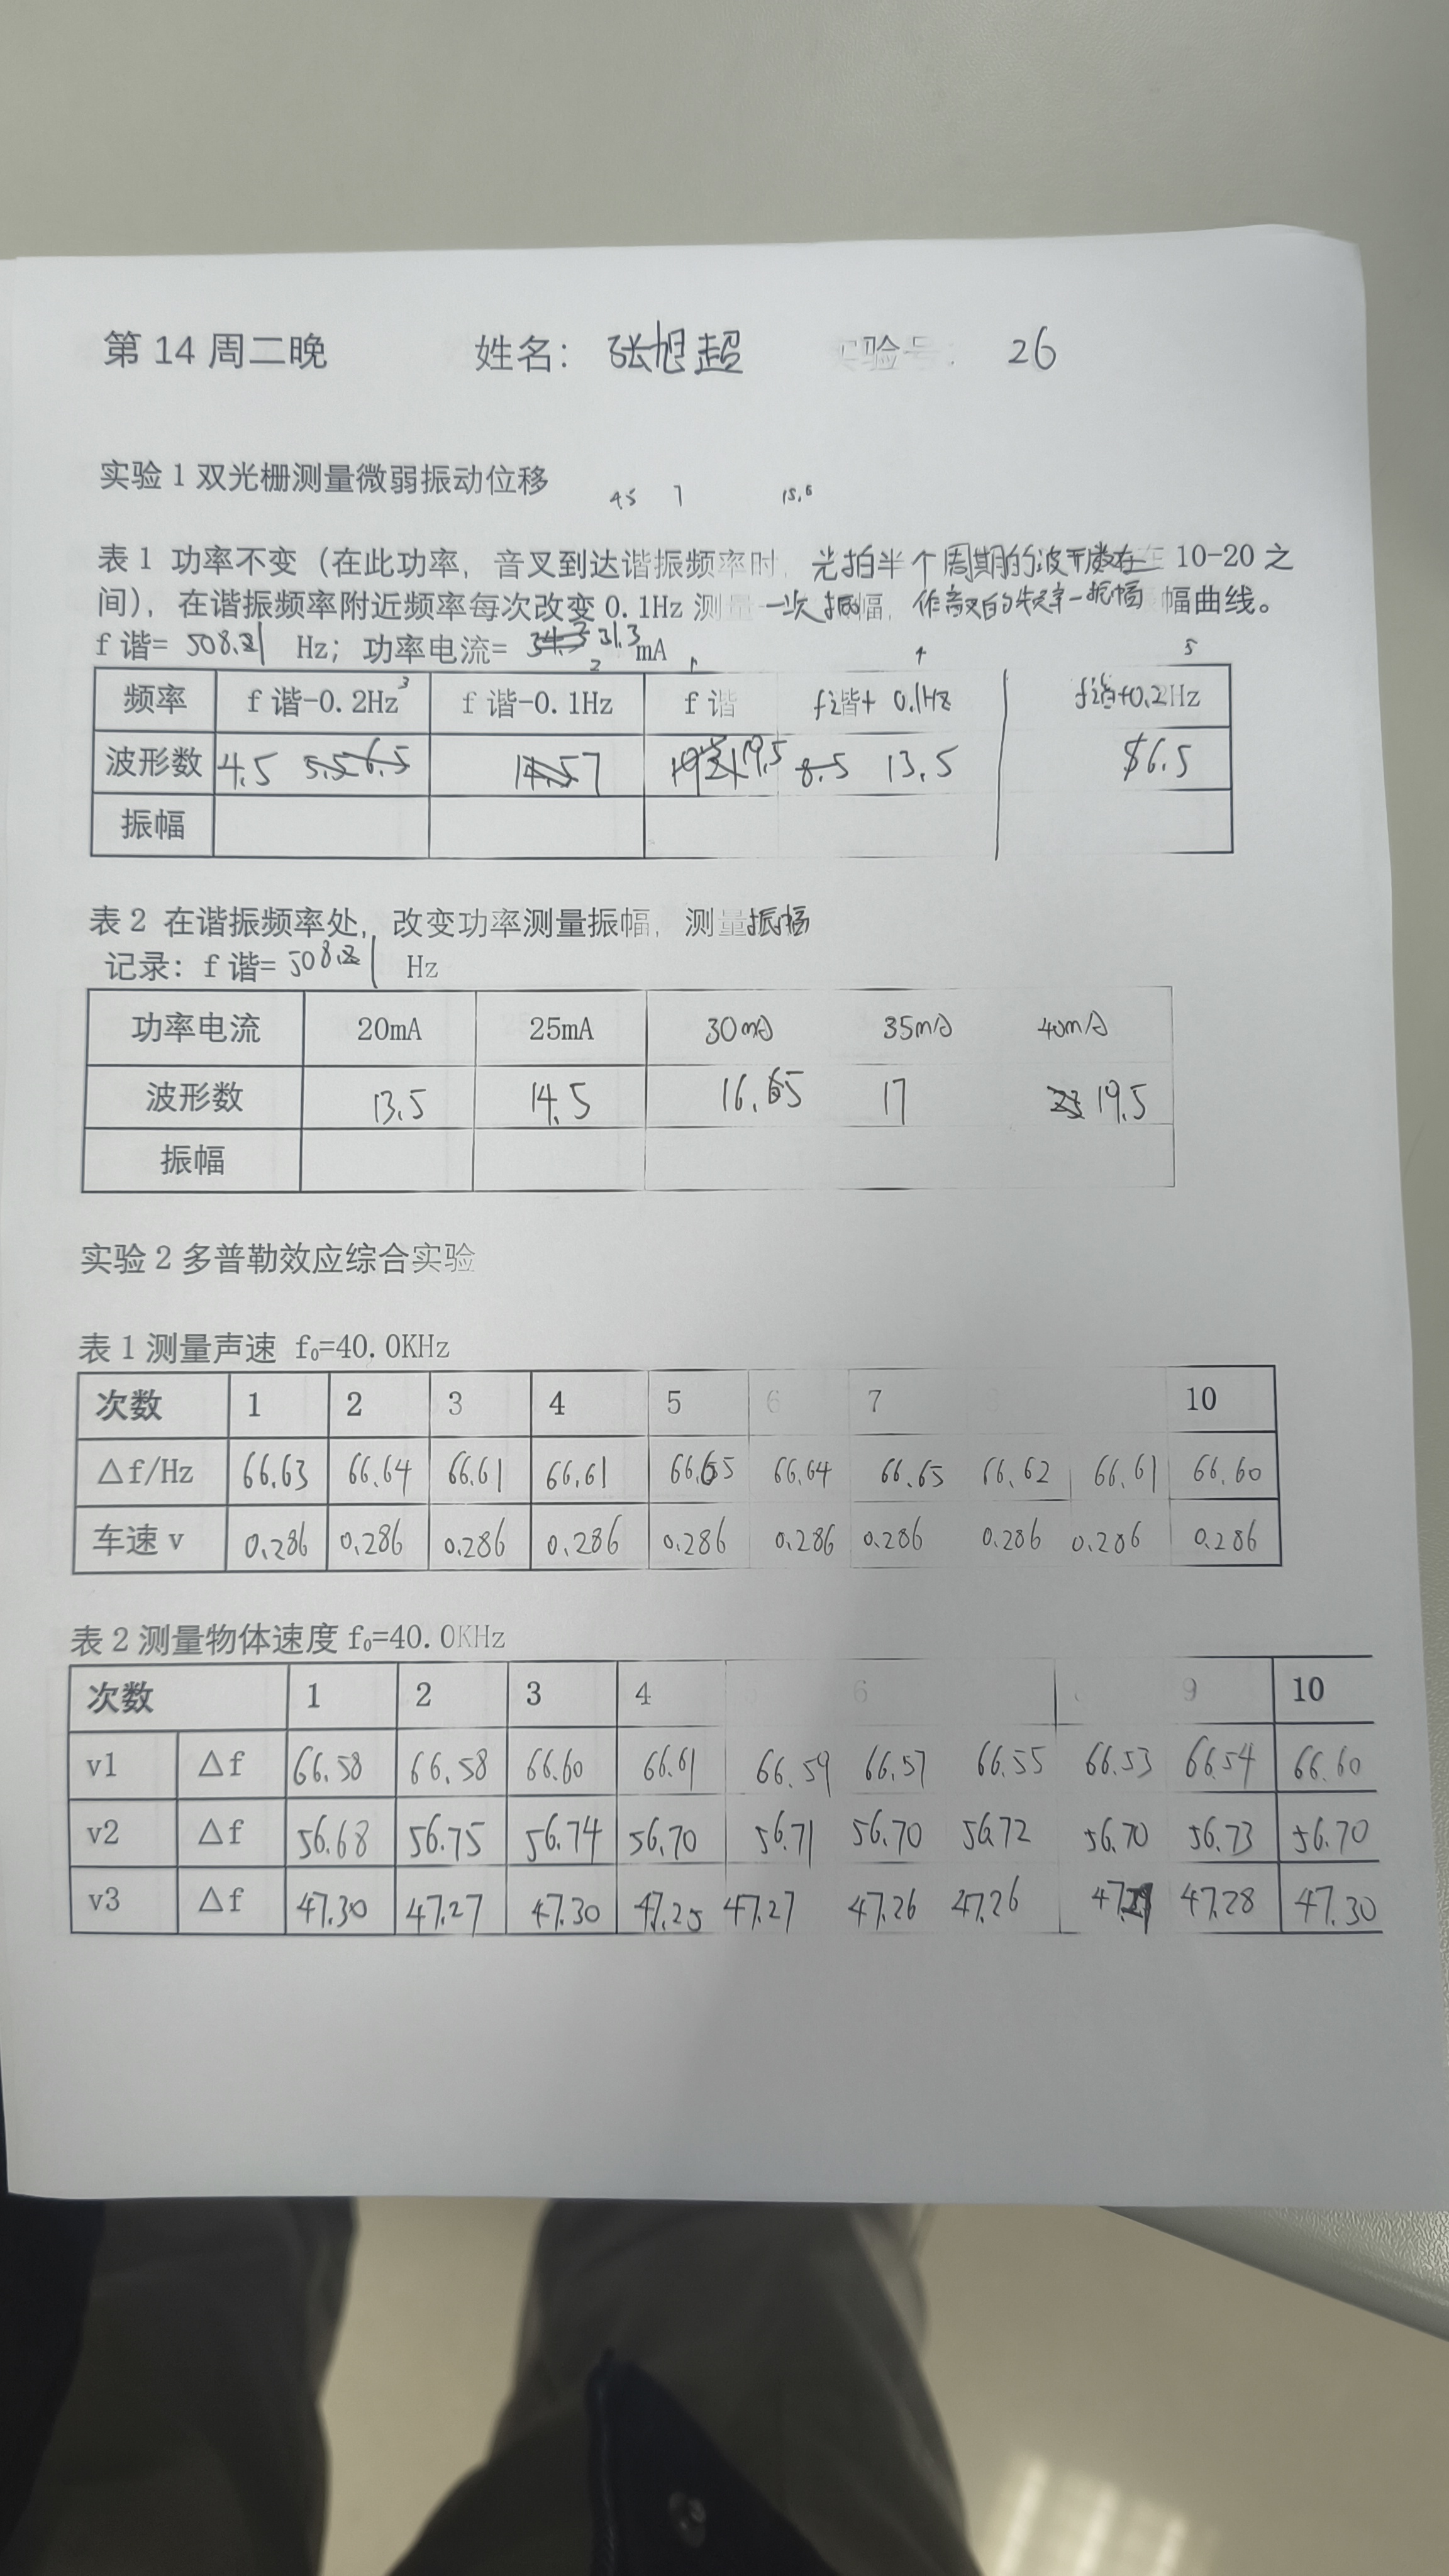 第 14 周二晚 姓名： 张旭超 实验号： 26
实验 1 双光栅测量微弱振动位移
4.5 7 15.5
表 1 功率不变（在此功率，音叉到达谐振频率时，光拍半个周期的波形数在 10-20 之
间），在谐振频率附近频率每次改变 0.1Hz 测量一次振幅，作音叉的频率一振幅 幅曲线。
f 谐= 508.21 Hz；功率电流= 31.3 mA
2 1 4 5
频率 f 谐-0.2Hz 3 f 谐-0.1Hz f 谐 f谐+ 0.1Hz f谐+0.2Hz
波形数 4.5 5.5 6.5 7 19.5 8.5 13.5 6.5
振幅
表 2 在谐振频率处，改变功率测量振幅，测量振幅
记录：f 谐= 508.21 Hz
功率电流 20mA 25mA 30mA 35mA 40mA
波形数 13.5 14.5 16.5 17 19.5
振幅
实验 2 多普勒效应综合实验
表 1 测量声速 f₀=40.0KHz
次数 1 2 3 4 5 6 7 10
△f/Hz 66.63 66.64 66.61 66.61 66.65 66.64 66.65 66.62 66.61 66.60
车速 v 0.286 0.286 0.286 0.286 0.286 0.286 0.286 0.286 0.286 0.286
表 2 测量物体速度 f₀=40.0KHz
次数 1 2 3 4 6 9 10
v1 △f 66.58 66.58 66.60 66.61 66.59 66.57 66.55 66.53 66.54 66.60
v2 △f 56.68 56.75 56.74 56.70 56.71 56.70 56.72 56.70 56.73 56.70
v3 △f 47.30 47.27 47.30 47.25 47.27 47.26 47.26 47.28 47.30